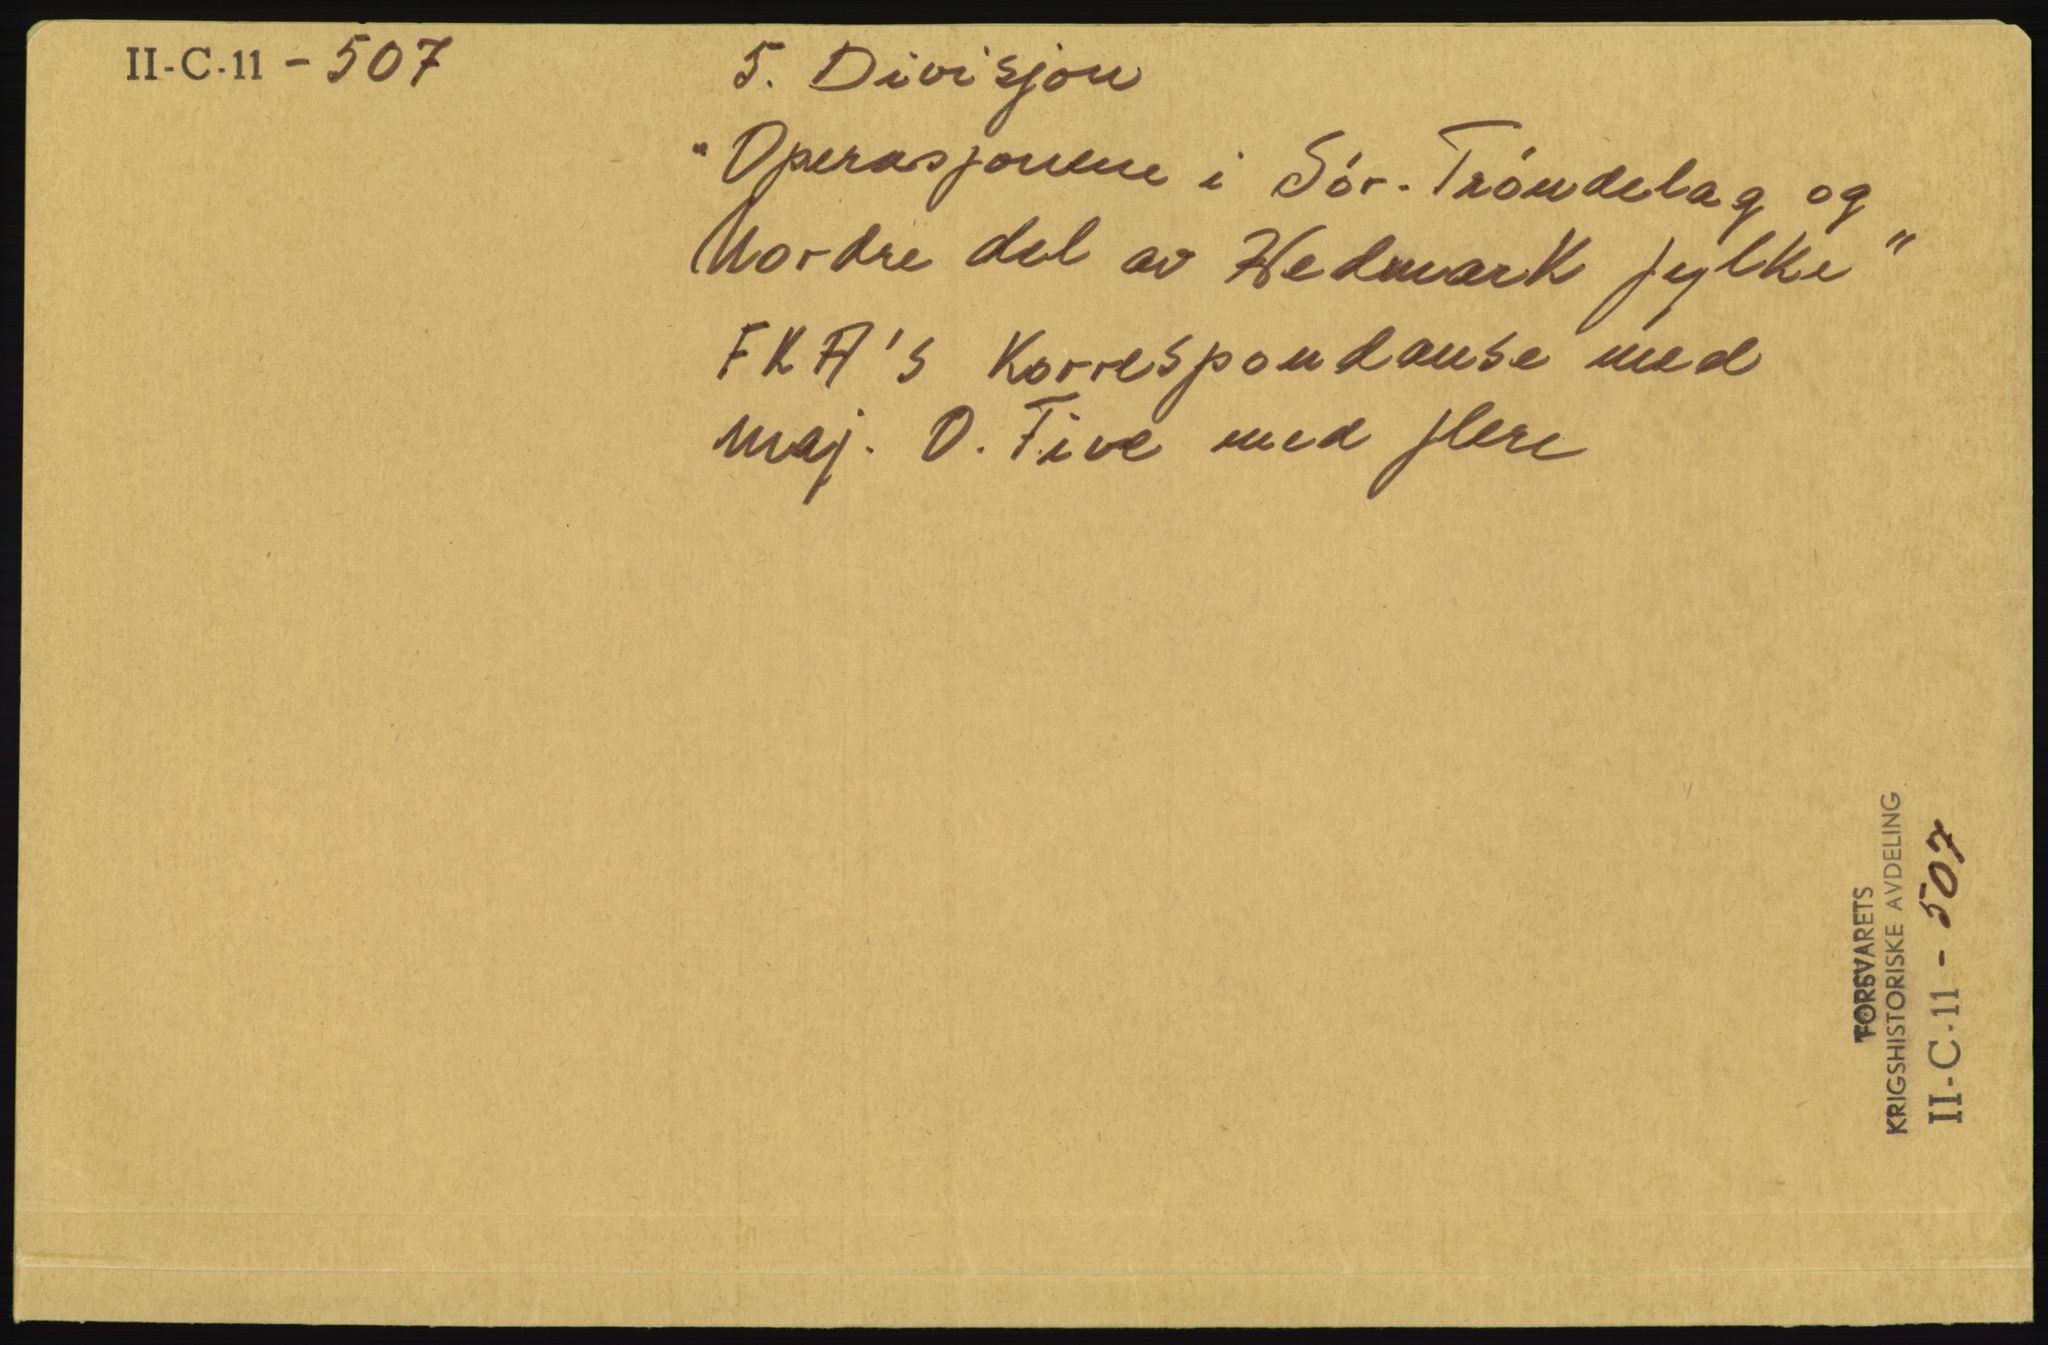 II-C-11 - 507
5. Divisjon
"Operasjonene i Sór-Tróndelag og
Nordre del av Hedmark fylke"
FKA's Korrespondanse med
maj. O. Five med flere
FORSVARETS
KRIGSHISTORISKE AVDELING
II-C-11 - 507